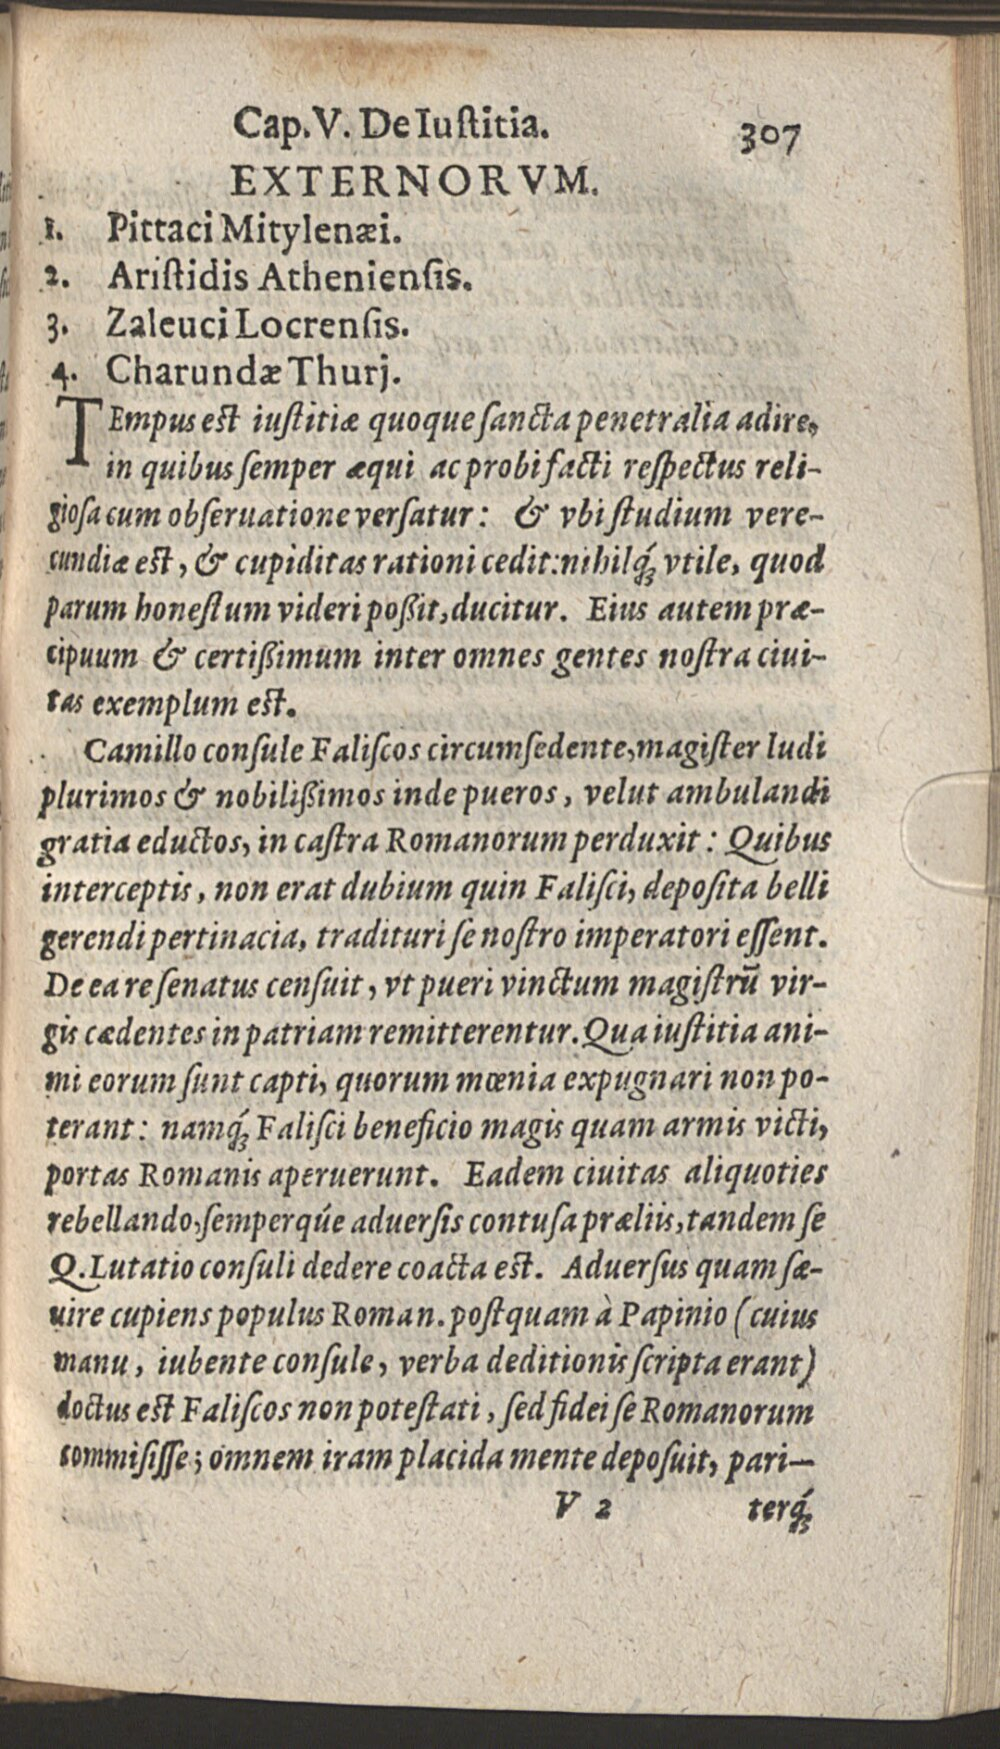 Cap. V. De Iuſtitia. 307
EXTERNORVM.
1. Pittaci Mitylenæi.
2. Ariſtidis Athenienſis.
3. Zaleuci Locrenſis.
4. Charundæ Thurj.
TEmpus eſt iuſtitiæ quoque ſancta penetralia adire,
in quibus ſemper æqui ac probi facti reſpectus reli-
gioſa cum obſeruatione verſatur: & vbi ſtudium vere-
cundiæ eſt, & cupiditas rationi cedit: nihilq́ꝫ vtile, quod
parum honeſtum videri poßit, ducitur. Eius autem præ-
cipuum & certißimum inter omnes gentes noſtra ciui-
tas exemplum eſt.
Camillo conſule Faliſcos circumſedente, magiſter ludi
plurimos & nobilißimos inde pueros, velut ambulandi
gratia eductos, in caſtra Romanorum perduxit: Quibus
interceptis, non erat dubium quin Faliſci, depoſita belli
gerendi pertinacia, tradituri ſe noſtro imperatori eſſent.
De ea re ſenatus cenſuit, vt pueri vinctum magiſtrū vir-
gis cædentes in patriam remitterentur. Qua iuſtitia ani-
mi eorum ſunt capti, quorum mœnia expugnari non po-
terant: namq́ꝫ Faliſci beneficio magis quam armis victi,
portas Romanis aperuerunt. Eadem ciuitas aliquoties
rebellando, ſemperqúe aduerſis contuſa præliis, tandem ſe
Q. Lutatio conſuli dedere coacta eſt. Aduerſus quam ſæ-
uire cupiens populus Roman. poſtquam à Papinio (cuius
manu, iubente conſule, verba deditionis ſcripta erant)
doctus eſt Faliſcos non poteſtati, ſed fidei ſe Romanorum
commiſiſſe; omnem iram placida mente depoſuit, pari-
V 2 terq́ꝫ